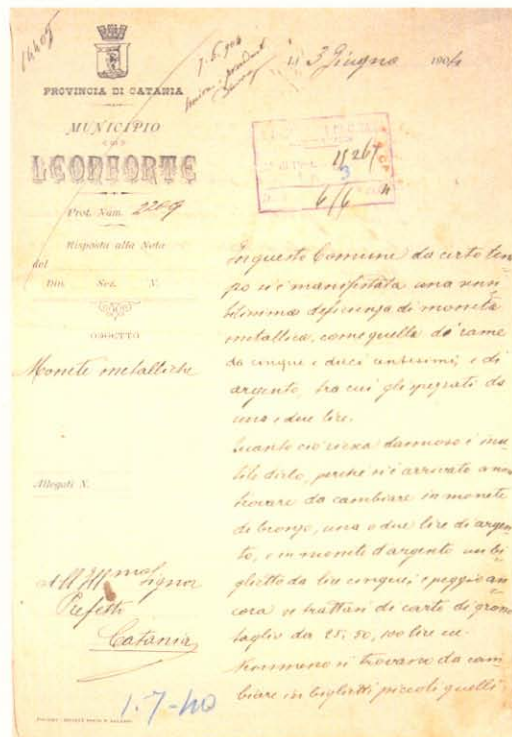 14405
PROVINCIA DI CATANIA
MUNICIPIO
DI
LEONFORTE
Prot. Num. 2269
Risposta alla Nota
del
Div. Sez. N.
OGGETTO
Monete metalliche
Allegati N.
All'Ill.mo Signor
Prefetto
Catania
1.7-40
7.6.904
li 3 Giugno 1904
15267
3
6/6 4
In questo Comune da certo tem-
po si è manifestata una sensi
bilissima deficienza di moneta
metallica, come quella di rame
da cinque e dieci centesimi, e di
argento, tra cui gli spezzati da
una e due lire.
Quanto ciò riesca dannoso è inu
tile dirlo, perché si è arrivato a non
trovare da cambiare in monete
di bronzo, una o due lire di argen
to, e in monete d'argento un bi
glietto da lire cinque; e peggio an
cora se trattasi di carte di grosso
taglio da 25, 50, 100 lire ecc.
Nemmeno si trovano da cam
biare in biglietti piccoli quelli